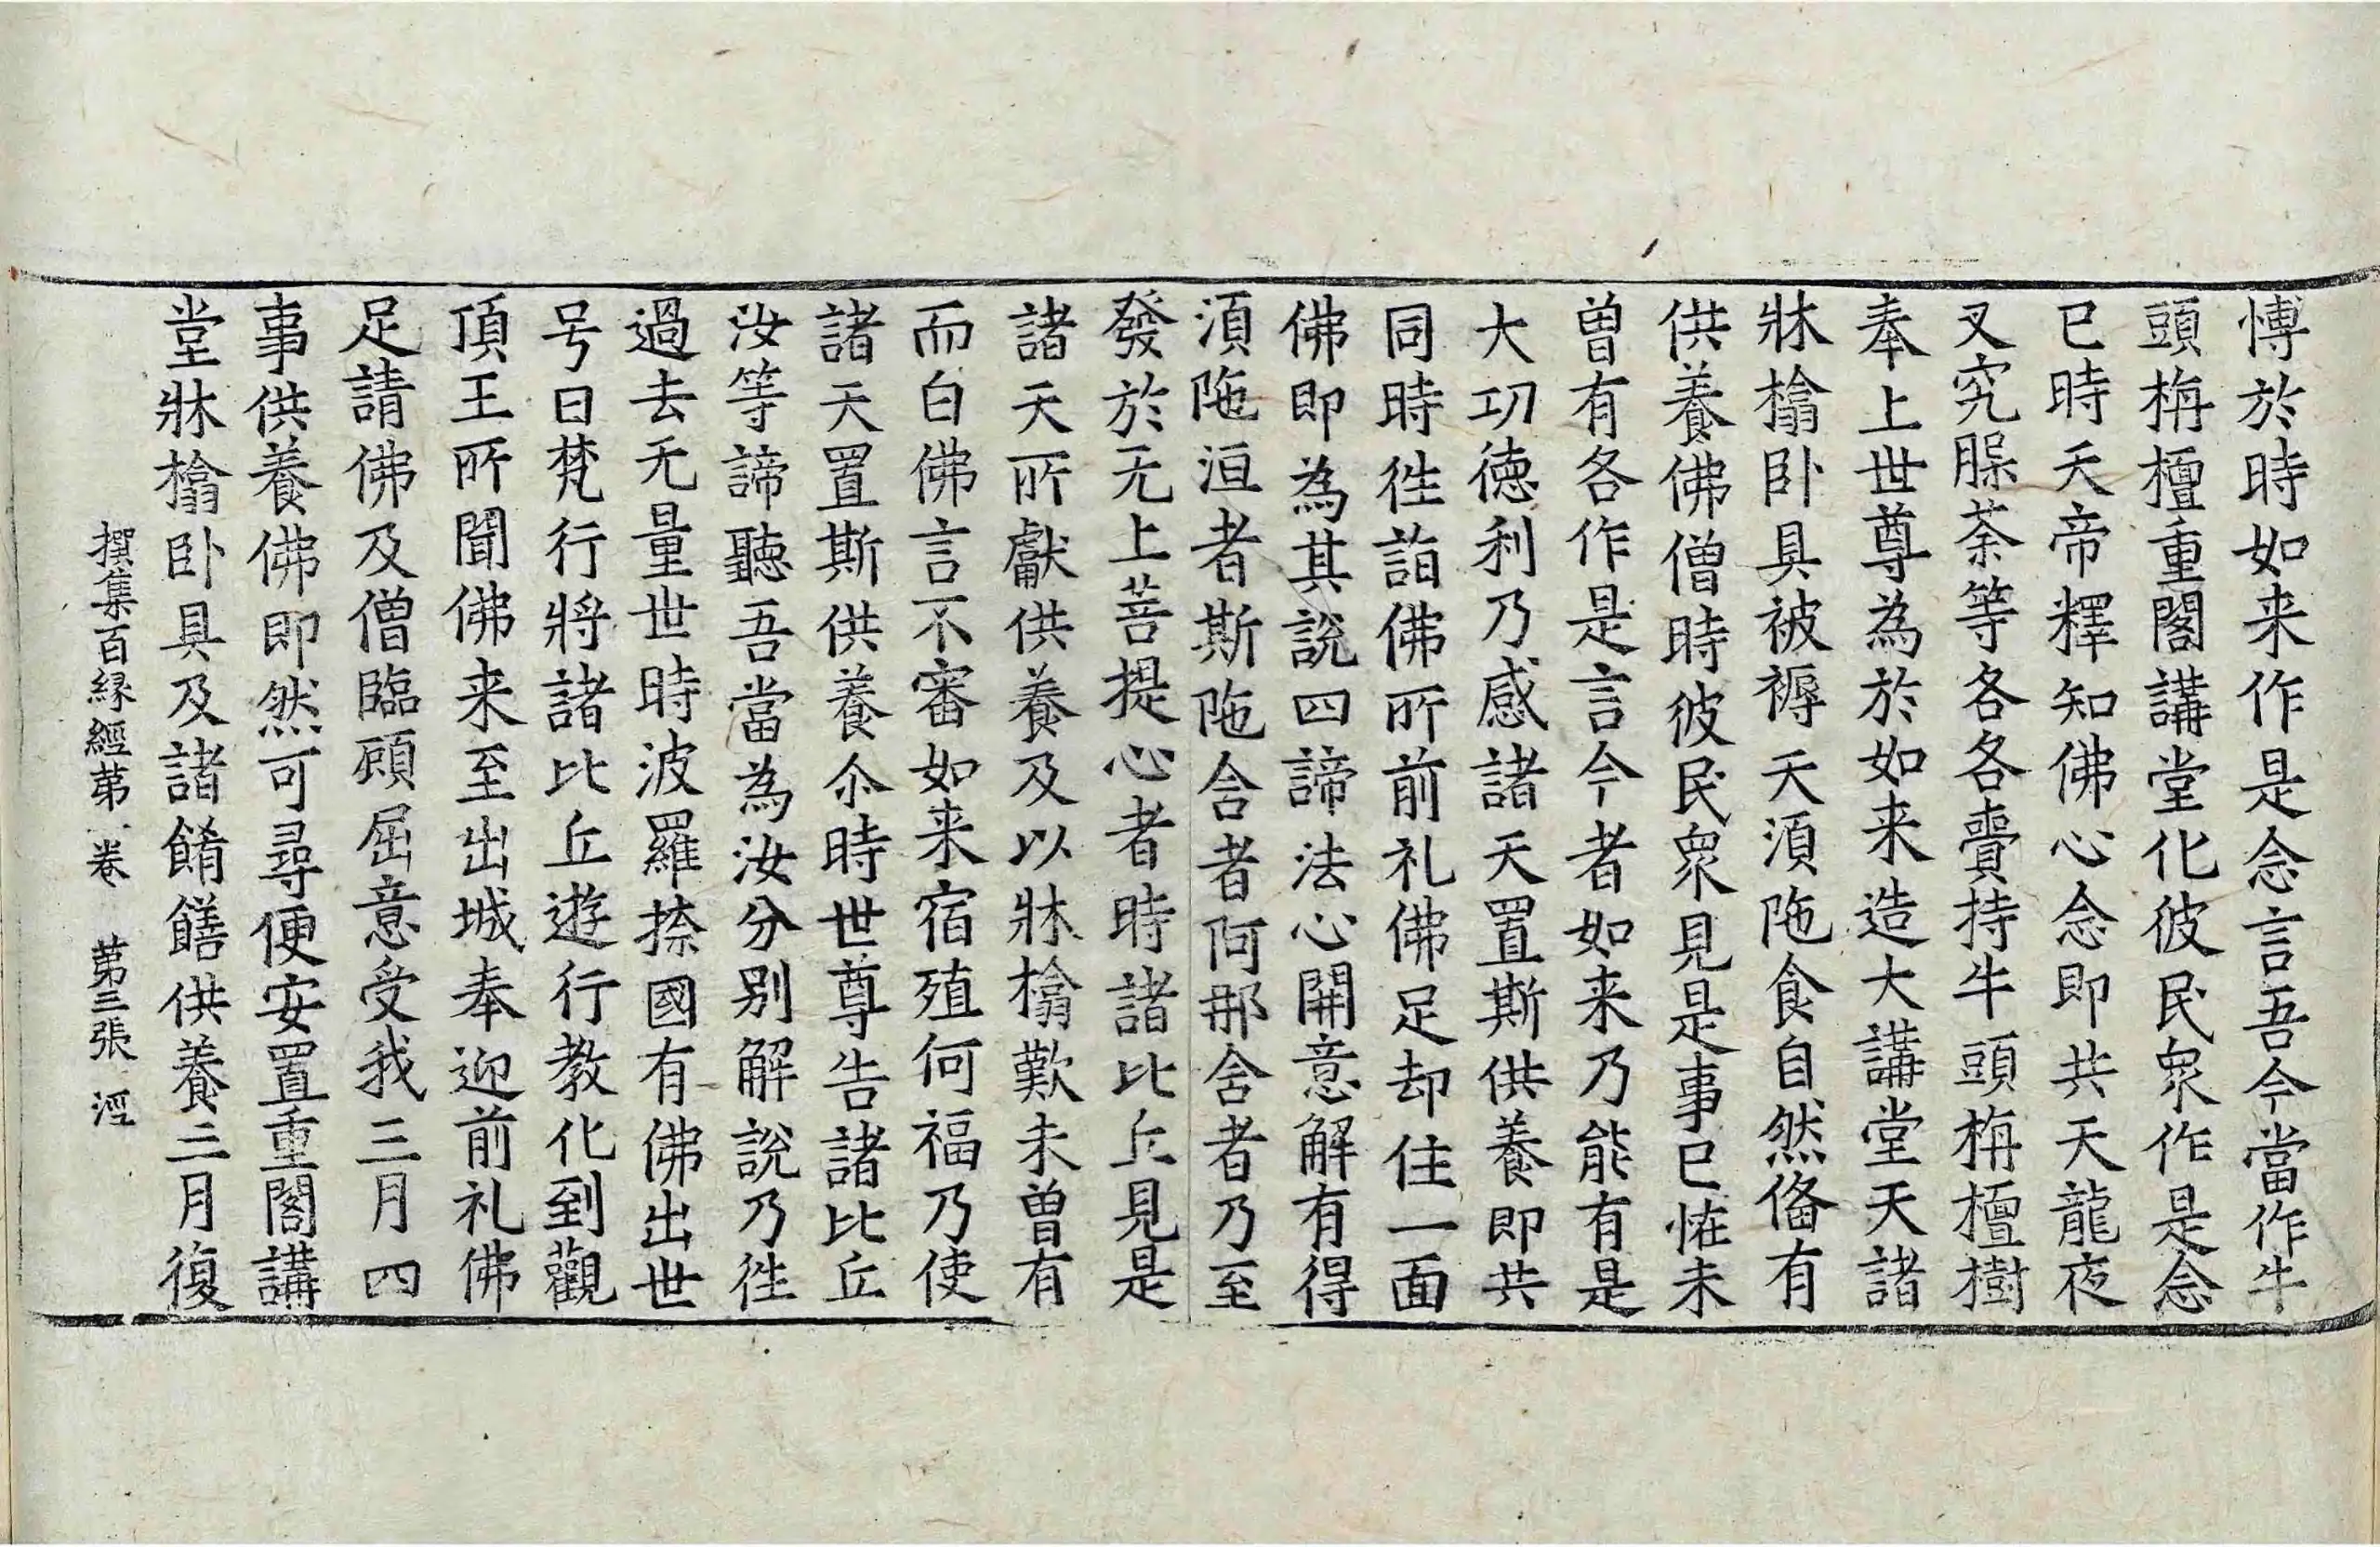 愽於時如来作是念言吾今當作牛
頭栴檀重閣講堂化彼民衆作是念
已時天帝釋知佛心念即共天龍夜
叉究腬荼等各各賷持牛頭栴檀樹
奉上世尊為於如来造大講堂天諸
牀榻卧具被褥天湏陁食自然俻有
供養佛僧時彼民衆見是事已恠未
曾有各作是言今者如来乃能有是
大㓛徳利乃感諸天置斯供養即共
同時徃詣佛所前礼佛足却住一面
佛即為其說四諦法心開意解有得
湏陁洹者斯陁含者阿那含者乃至
發於无上菩提心者時諸比丘見是
諸天所獻供養及以牀榻歎未曾有
而白佛言不審如来宿殖何福乃使
諸天置斯供養尒時世尊告諸比丘
汝等諦聽吾當為汝分别解說乃徃
過去无量世時波羅㮈國有佛出世
号曰梵行將諸比丘遊行教化到觀
頂王所聞佛来至出城奉迎前礼佛
足請佛及僧臨顧屈意受我三月四
事供養佛即然可尋便安置重閣講
堂牀榻卧具及諸餚饍供養三月復
撰集百縁經苐一卷 苐三張 涇